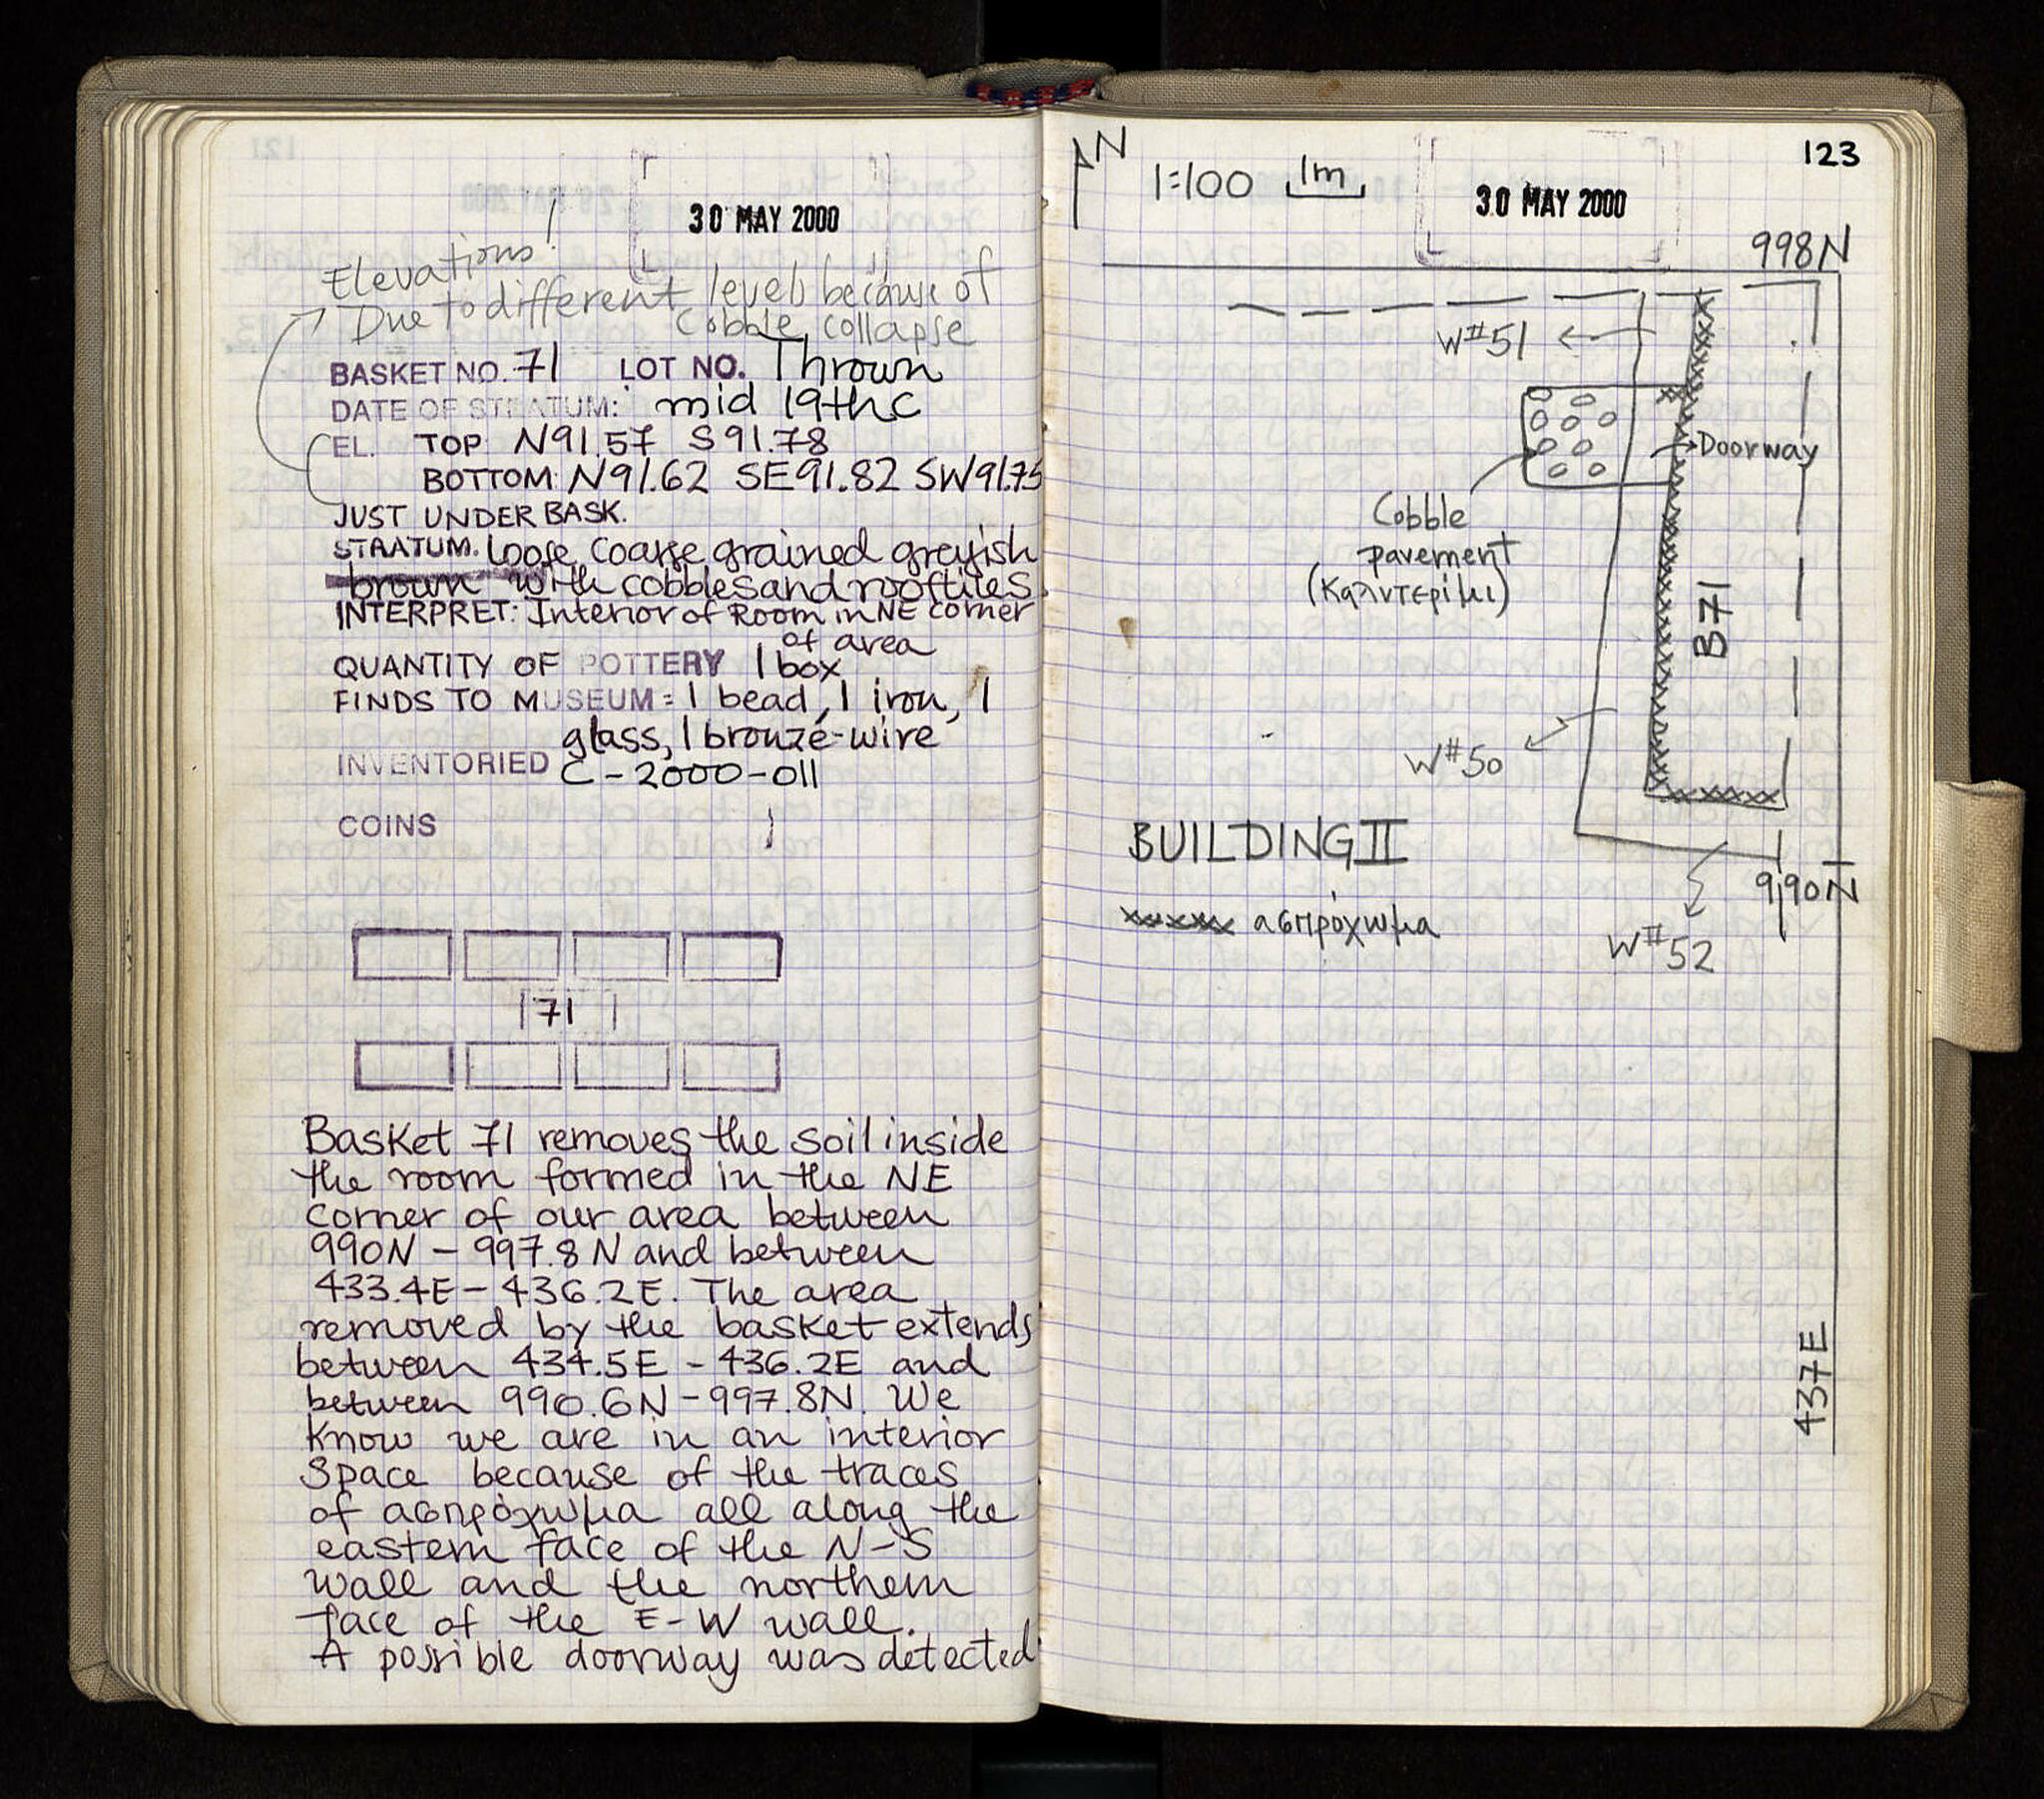 30 MAY 2000
Elevations!
Due to different levels because of
Cobble collapse
BASKET NO. 71 LOT NO. Thrown
DATE OF STRATUM: mid 19th c
EL. TOP N91.57 S91.78
BOTTOM: N91.62 SE91.82 SW91.75
JUST UNDER BASK.
STRATUM. loose coarse grained greyish
brown with cobbles and rooftiles.
INTERPRET: Interior of Room in NE corner
of area
QUANTITY OF POTTERY 1 box
FINDS TO MUSEUM: 1 bead, 1 iron, 1
glass, 1 bronze-wire
INVENTORIED C-2000-011
COINS
71
Basket 71 removes the soil inside
the room formed in the NE
corner of our area between
990N - 997.8N and between
433.4E - 436.2E. The area
removed by the basket extends
between 434.5E - 436.2E and
between 990.6N - 997.8N. We
know we are in an interior
space because of the traces
of ασπρόχωμα all along the
eastern face of the N-S
wall and the northern
face of the E-W wall.
A possible doorway was detected
123
N
1:100 1m
30 MAY 2000
998N
W#51
Doorway
Cobble
pavement
(Καλντερίμι)
B71
W#50
BUILDING II
990N
ασπρόχωμα
W#52
437E